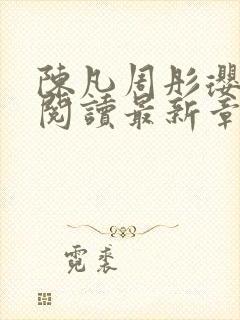 陳凡周彤瓔
閱讀最新章
霓裘